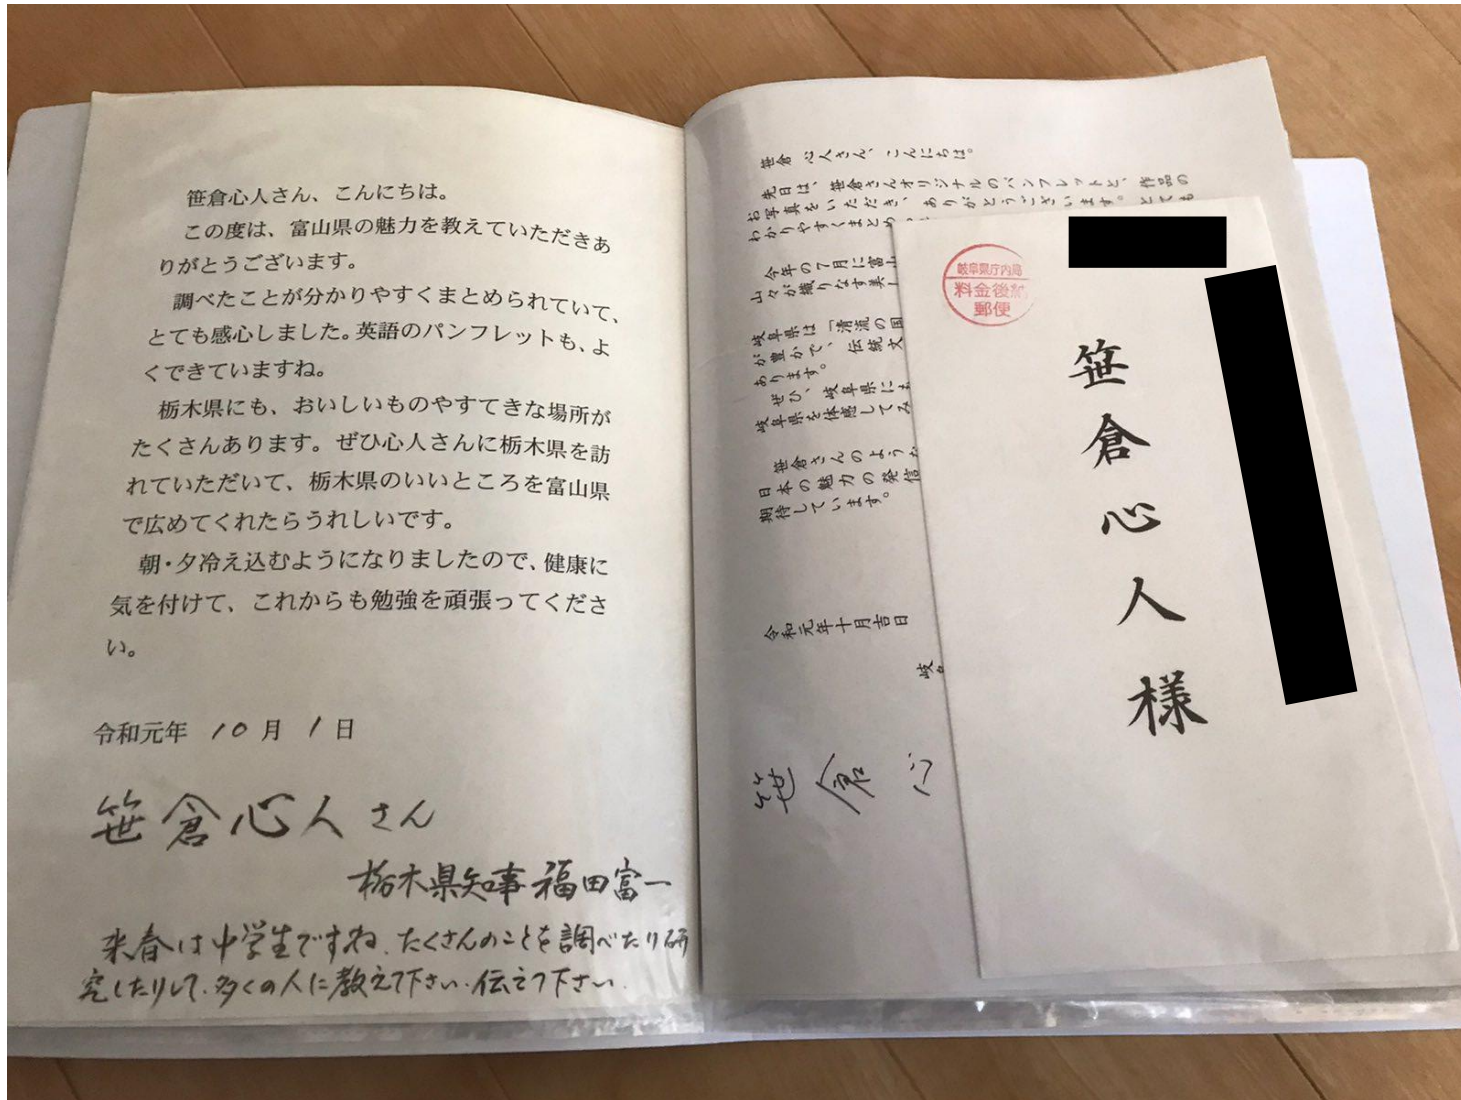 笹倉心人さん、こんにちは。
この度は、富山県の魅力を教えていただきあ
りがとうございます。
調べたことが分かりやすくまとめられていて、
とても感心しました。英語のパンフレットも、よ
くできていますね。
栃木県にも、おいしいものやすてきな場所が
たくさんあります。ぜひ心人さんに栃木県を訪
れていただいて、栃木県のいいところを富山県
で広めてくれたらうれしいです。
朝・夕冷え込むようになりましたので、健康に
気を付けて、これからも勉強を頑張ってくださ
い。
令和元年 10月 1日
笹倉心人さん
栃木県知事 福田富一
来春は中学生ですね。たくさんのことを調べたり研
究したりして、多くの人に教えて下さい。伝えて下さい。
笹倉 心人さん、こんにちは。
先日は、笹倉さんオリジナルのパンフレットと、作品の
お写真をいただき、ありがとうございます。とても
わかりやすくまとめ
今年の7月に富山
山々が織りなす美し
岐阜県は「清流の国
が豊かで、伝統文
あります。
ぜひ、岐阜県に
岐阜県を体感してみ
笹倉さんのような
日本の魅力の発信
期待しています。
令和元年十月吉日
岐
笹倉心
岐阜県庁内局
料金後納
郵便
笹倉心人様